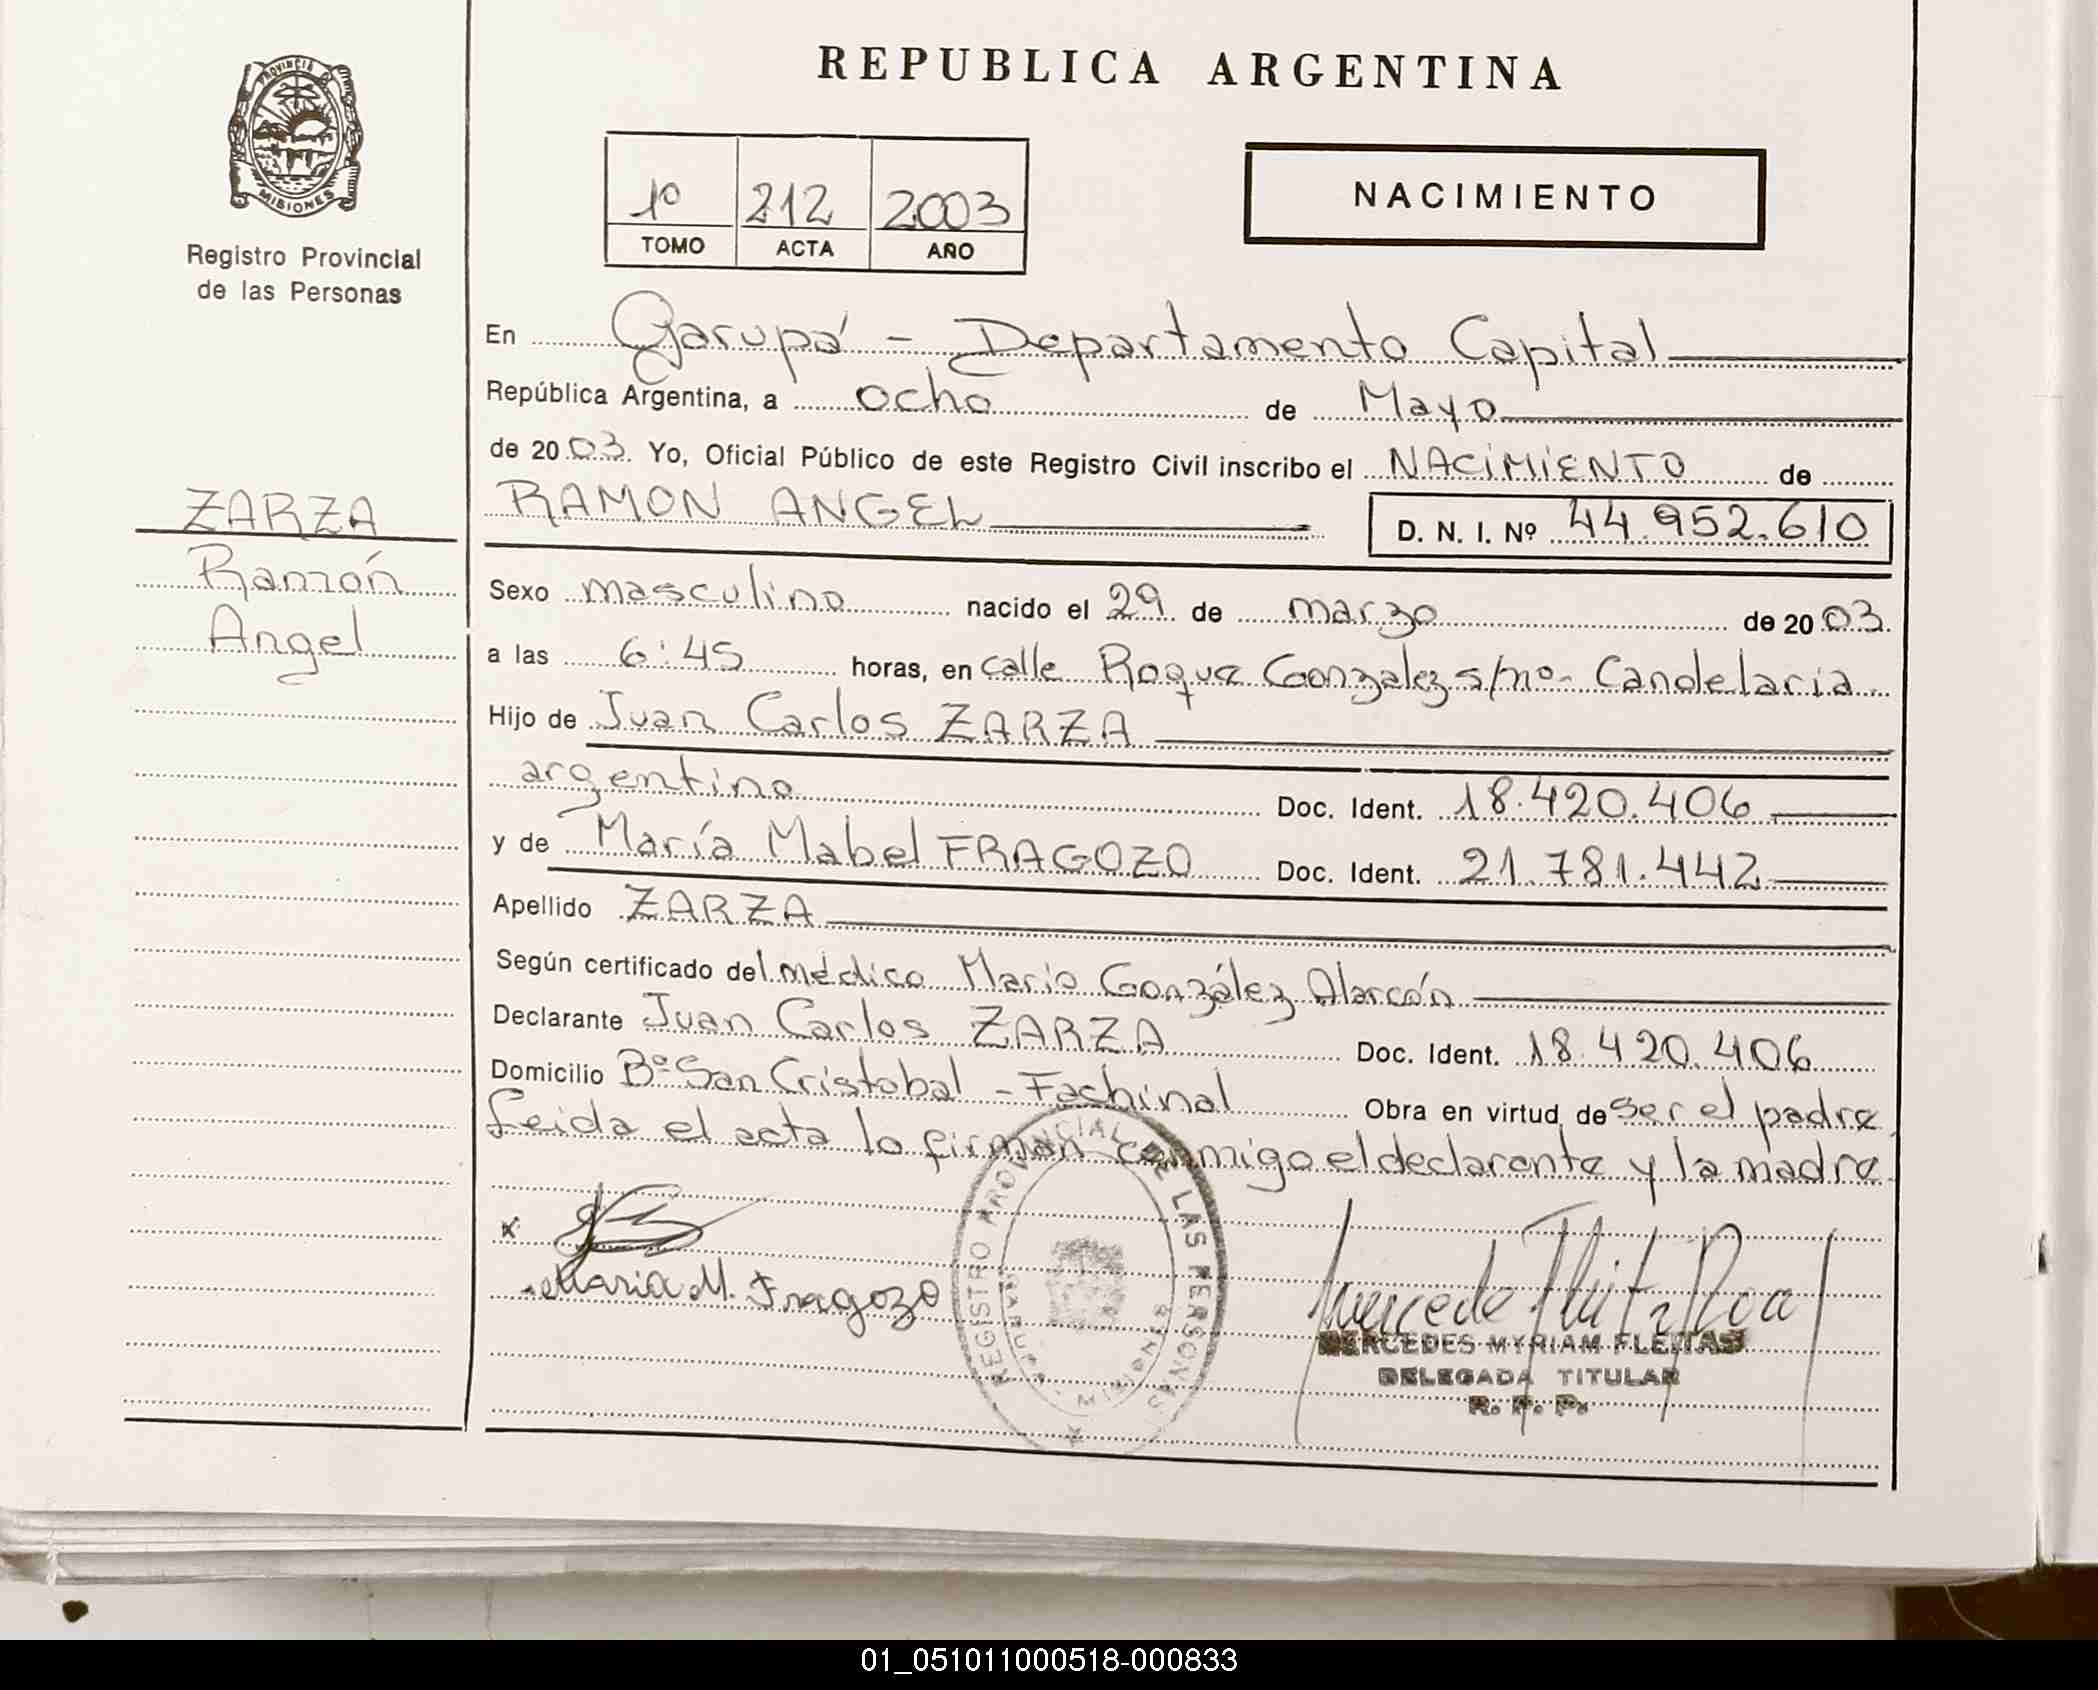 REPUBLICA ARGENTINA
PROVINCIA D
MISIONES
Registro Provincial
de las Personas
1º 212 2003
TOMO ACTA AÑO
NACIMIENTO
En Garupá - Departamento Capital
República Argentina, a ocho de Mayo
de 2003. Yo, Oficial Público de este Registro Civil inscribo el NACIMIENTO de
RAMON ANGEL D. N. I. Nº 44.952.610
ZARZA
Ramón
Angel
Sexo masculino nacido el 29 de marzo de 2003.
a las 6:45 horas, en calle Roque Gonzalez s/nº- Candelaria
Hijo de Juan Carlos ZARZA
argentino Doc. Ident. 18.420.406
y de María Mabel FRAGOZO Doc. Ident. 21.781.442
Apellido ZARZA
Según certificado del médico Mario González Alarcón
Declarante Juan Carlos ZARZA Doc. Ident. 18.420.406
Domicilio Bº San Cristobal - Fachinal Obra en virtud de ser el padre
Leida el acta lo firman conmigo el declarante y la madre
x
Maria M. Fragozo
REGISTRO PROVINCIAL DE LAS PERSONAS
GARUPA - Misiones
MERCEDES MYRIAM FLEITAS
DELEGADA TITULAR
R. P. P.
01_051011000518-000833